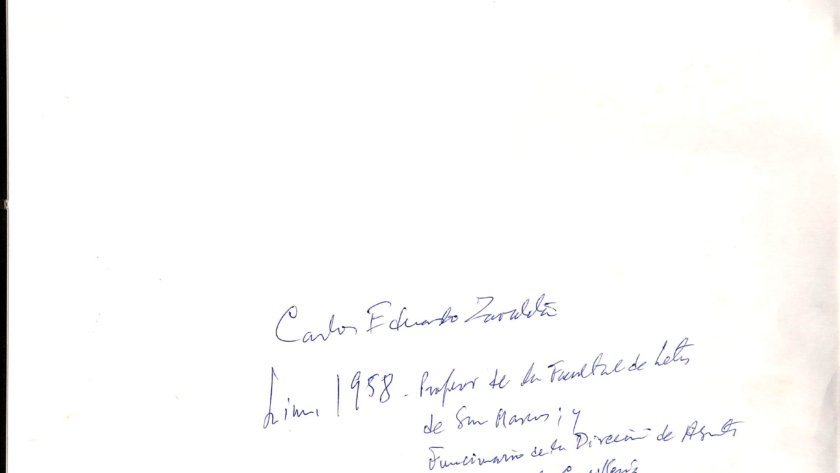 Carlos Eduardo Zavaleta
Lima, 1958. Profesor de la Facultad de Letras
de San Marcos; y
Funcionario de la Dirección de Asuntos
Cancillería